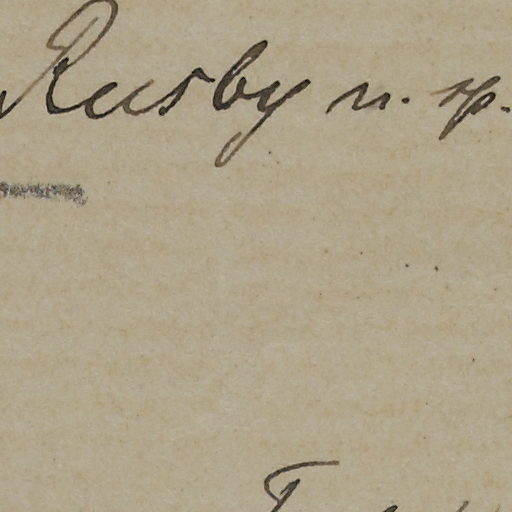 Rusby n. sp.